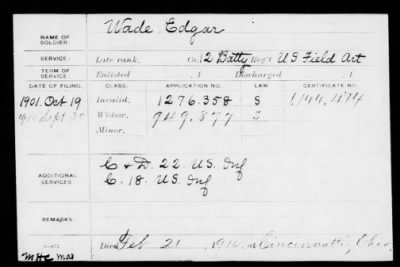 NAME OF SOLDIER: Wade, Edgar
SERVICE: Late rank, Co. 12 Batty Reg't U.S. Field Art
TERM OF SERVICE: Enlisted , 1 Discharged , 1
DATE OF FILING. CLASS. APPLICATION NO. LAW. CERTIFICATE NO.
1901. Oct 19 Invalid, 1276.358 S
Sept Widow, 949.877 S
Minor,
ADDITIONAL SERVICES: C & D. 22 U.S. Inf
C. 18. U.S. Inf
REMARKS:
Died Feb 21, Cincinnatti, Ohio